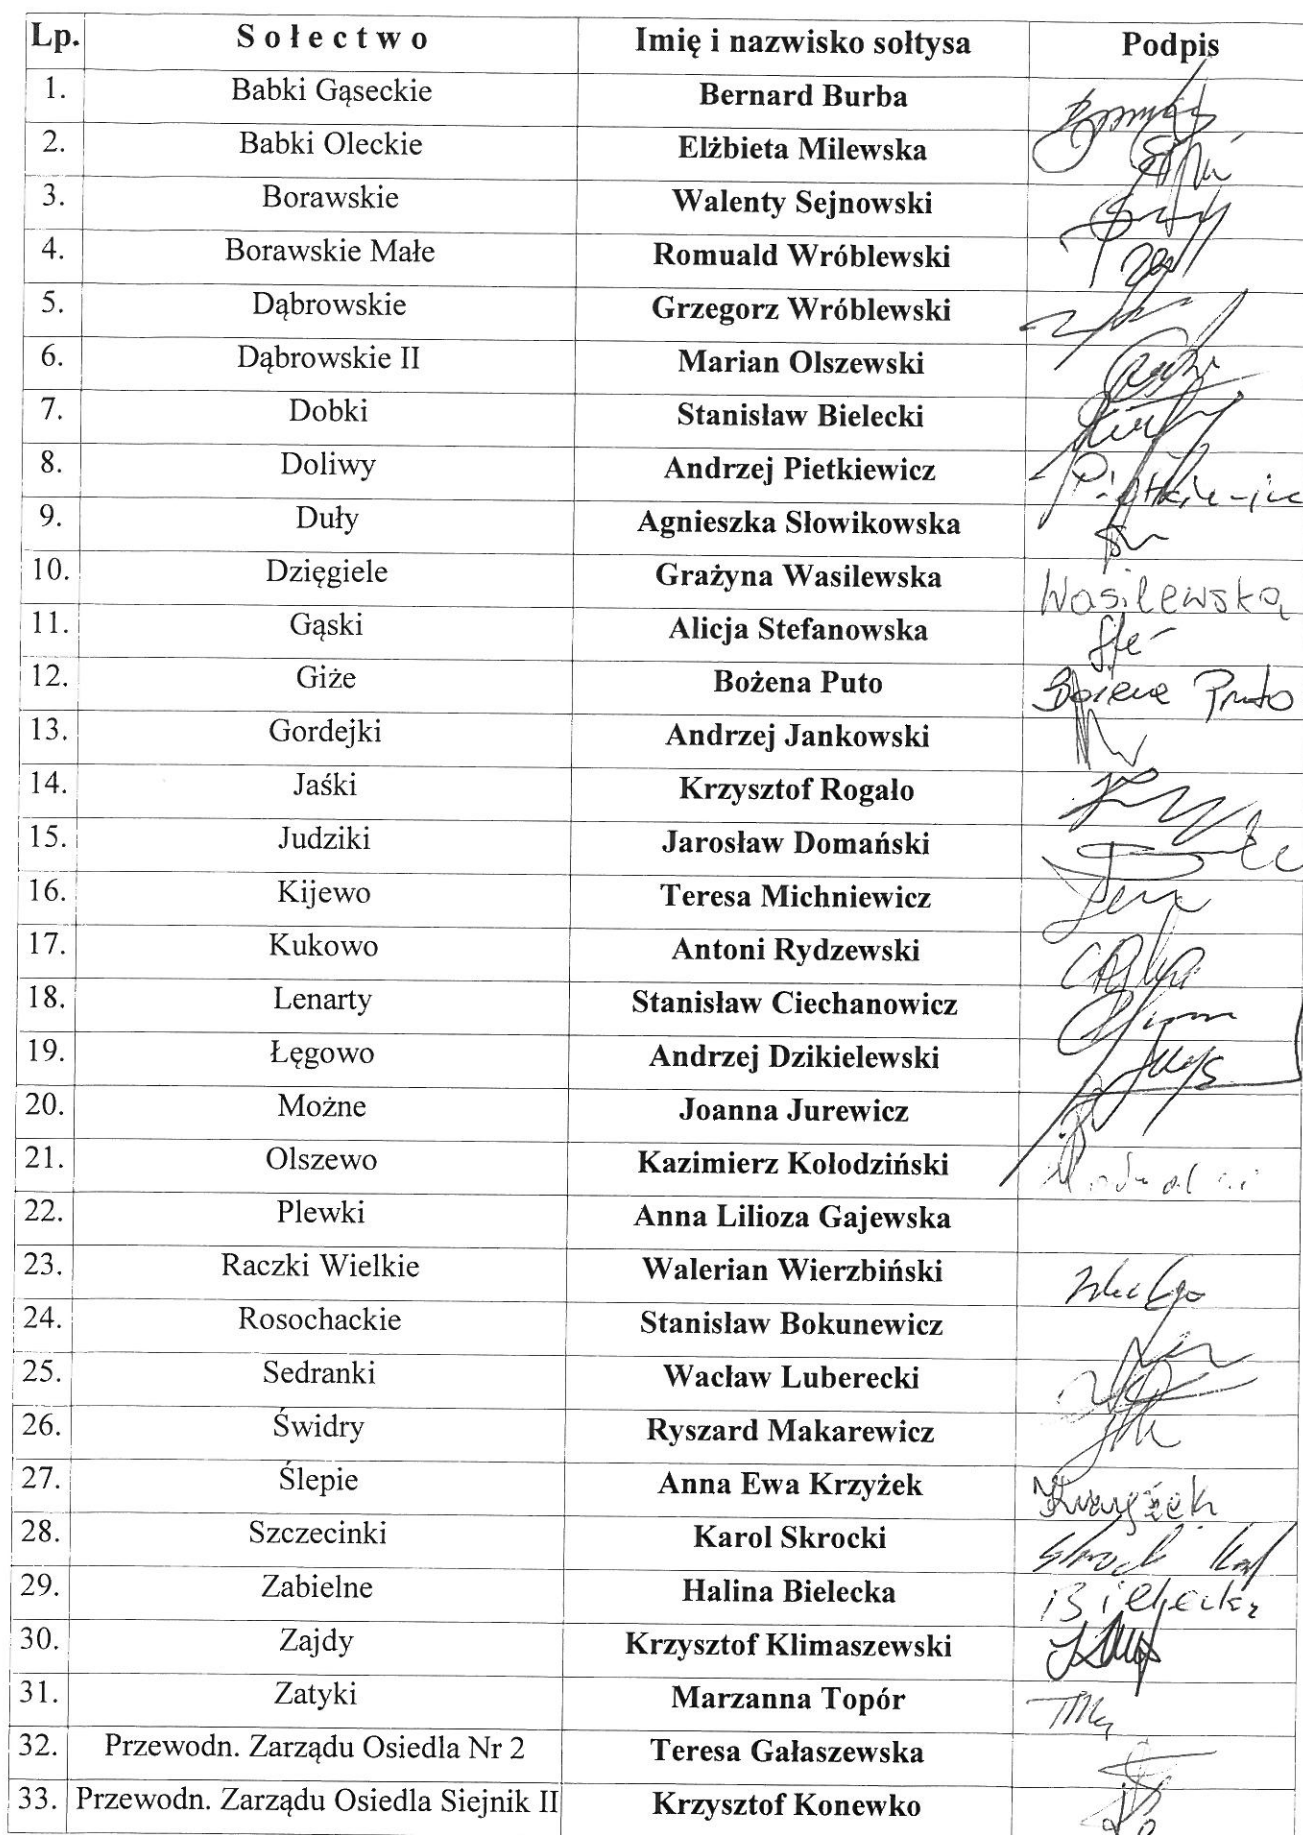 Lp. Sołectwo Imię i nazwisko sołtysa Podpis
1. Babki Gąseckie Bernard Burba
2. Babki Oleckie Elżbieta Milewska
3. Borawskie Walenty Sejnowski
4. Borawskie Małe Romuald Wróblewski
5. Dąbrowskie Grzegorz Wróblewski
6. Dąbrowskie II Marian Olszewski
7. Dobki Stanisław Bielecki
8. Doliwy Andrzej Pietkiewicz
9. Duły Agnieszka Słowikowska
10. Dzięgiele Grażyna Wasilewska Wasilewska
11. Gąski Alicja Stefanowska
12. Giże Bożena Puto Bożena Puto
13. Gordejki Andrzej Jankowski
14. Jaśki Krzysztof Rogało
15. Judziki Jarosław Domański
16. Kijewo Teresa Michniewicz
17. Kukowo Antoni Rydzewski
18. Lenarty Stanisław Ciechanowicz
19. Łęgowo Andrzej Dzikielewski
20. Możne Joanna Jurewicz
21. Olszewo Kazimierz Kołodziński
22. Plewki Anna Lilioza Gajewska
23. Raczki Wielkie Walerian Wierzbiński
24. Rosochackie Stanisław Bokunewicz
25. Sedranki Wacław Luberecki
26. Świdry Ryszard Makarewicz
27. Ślepie Anna Ewa Krzyżek
28. Szczecinki Karol Skrocki
29. Zabielne Halina Bielecka Bielecka
30. Zajdy Krzysztof Klimaszewski
31. Zatyki Marzanna Topór
32. Przewodn. Zarządu Osiedla Nr 2 Teresa Gałaszewska
33. Przewodn. Zarządu Osiedla Siejnik II Krzysztof Konewko